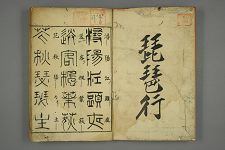 琵琶行
潯陽江頭夜
送客楓葉荻
花秋瑟瑟主